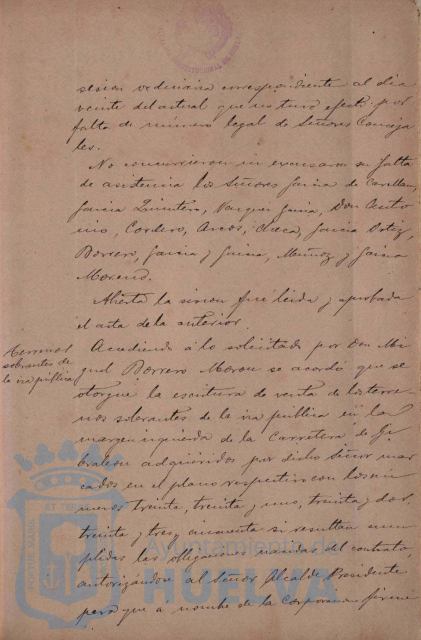 sesion ordinaria correspondiente al dia
veinte del actual que no tuvo efecto por
falta de número legal de Señores Conceja
les.
No concurrieron ni excusaron su falta
de asistencia los Señores Garcia de
Garcia Quintero, Vazquez Garcia, Don Anto
nio, Cordero, Arcos, Checa, Garcia Ortiz,
Borrero, Garcia y Garcia, Muñoz y Garcia
Moreno.
Abierta la sesion fué leida y aprobada
el acta de la anterior.
Terrenos
sobrantes de
la via pública
Accediendo á lo solicitado por Don Mi
guel Borrero Moron se acordó que se
otorgue la escritura de venta de los terre
nos sobrantes de la via publica en la
margen izquierda de la Carretera de Gi
braleon adquiridos por dicho Señor mar
cados en el plano respectivo con los nú
meros treinta, treinta y uno, treinta y dos,
treinta y tres y cincuenta si resultan cum
plidas las obligaciones del contrato,
autorizándose al Señor Alcalde Presidente
para que a nombre de la Corporacion
Ayuntamiento de
HUELVA